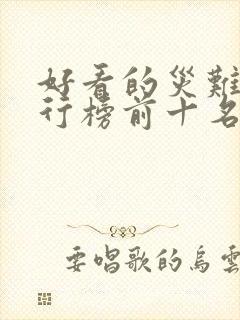 好看的災難
行榜前十名
要唱歌的烏雲